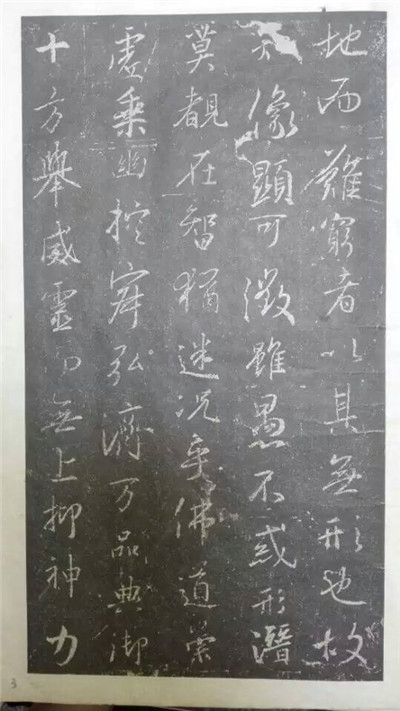 地而難窮者以其無形也故
像顯可徵雖愚不惑形潛
莫覩在智猶迷況乎佛道崇
虛乘幽控寂弘濟万品典御
十方舉威靈而無上抑神力
3